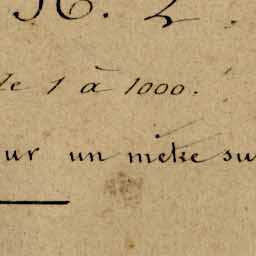 N. 2.
le 1 à 1000.
ur un metre su